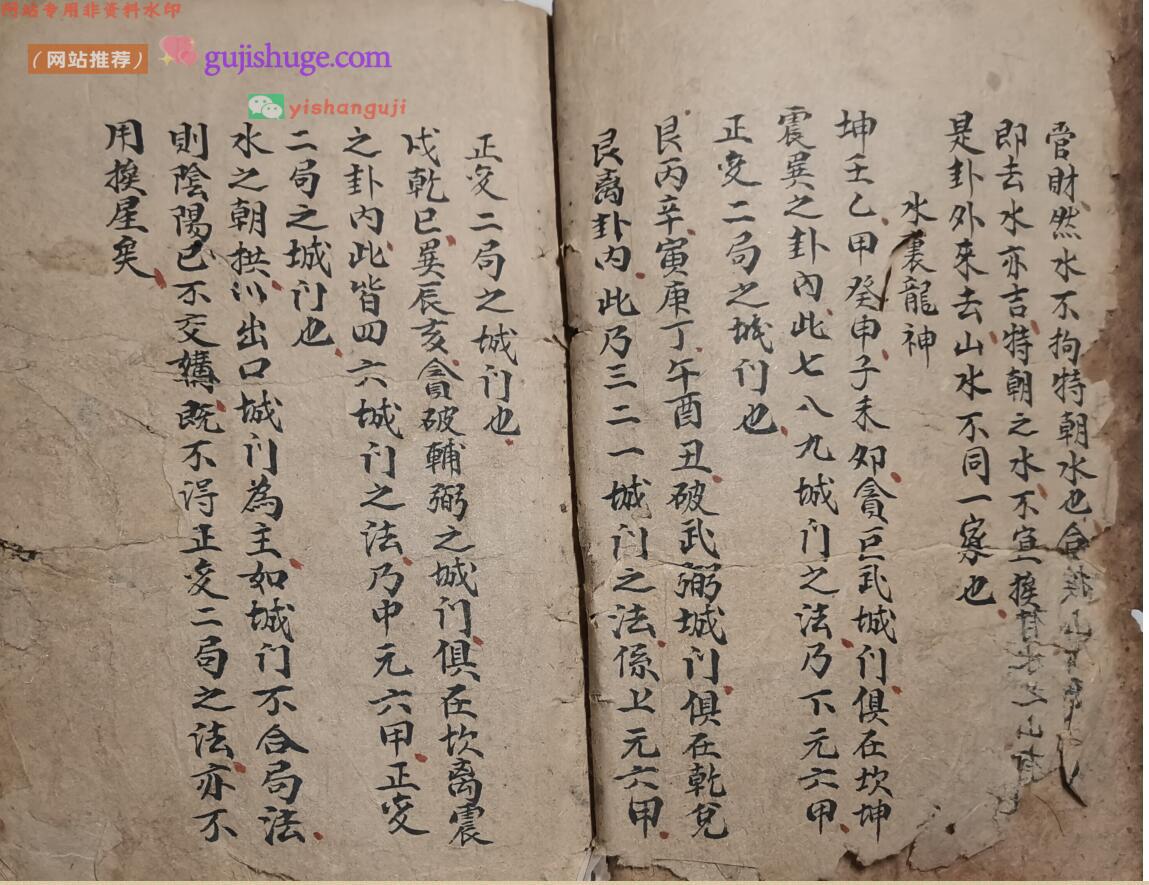 网站专用非资料水印
（网站推荐）
gujishuge.com
yishanguji
管財然水不拘特朝水也合
即去水亦吉特朝之水不宜換
是卦外來去山水不同一家也
水裏龍神
坤壬乙甲癸申子未卯貪巨武城门俱在坎坤
震巽之卦內此七八九城门之法乃下元六甲
正变二局之城门也
艮丙辛寅庚丁午酉丑破武弼城门俱在乾兌
艮离卦内此乃三二一城门之法係上元六甲
正变二局之城门也
戌乾巳巽辰亥貪破輔弼之城门俱在坎离震
之卦内此皆四六城门之法乃中元六甲正变
二局之城门也
水之朝拱以出口城门為主如城门不合局法
則陰陽已不交媾既不淂正变二局之法亦不
用換星矣